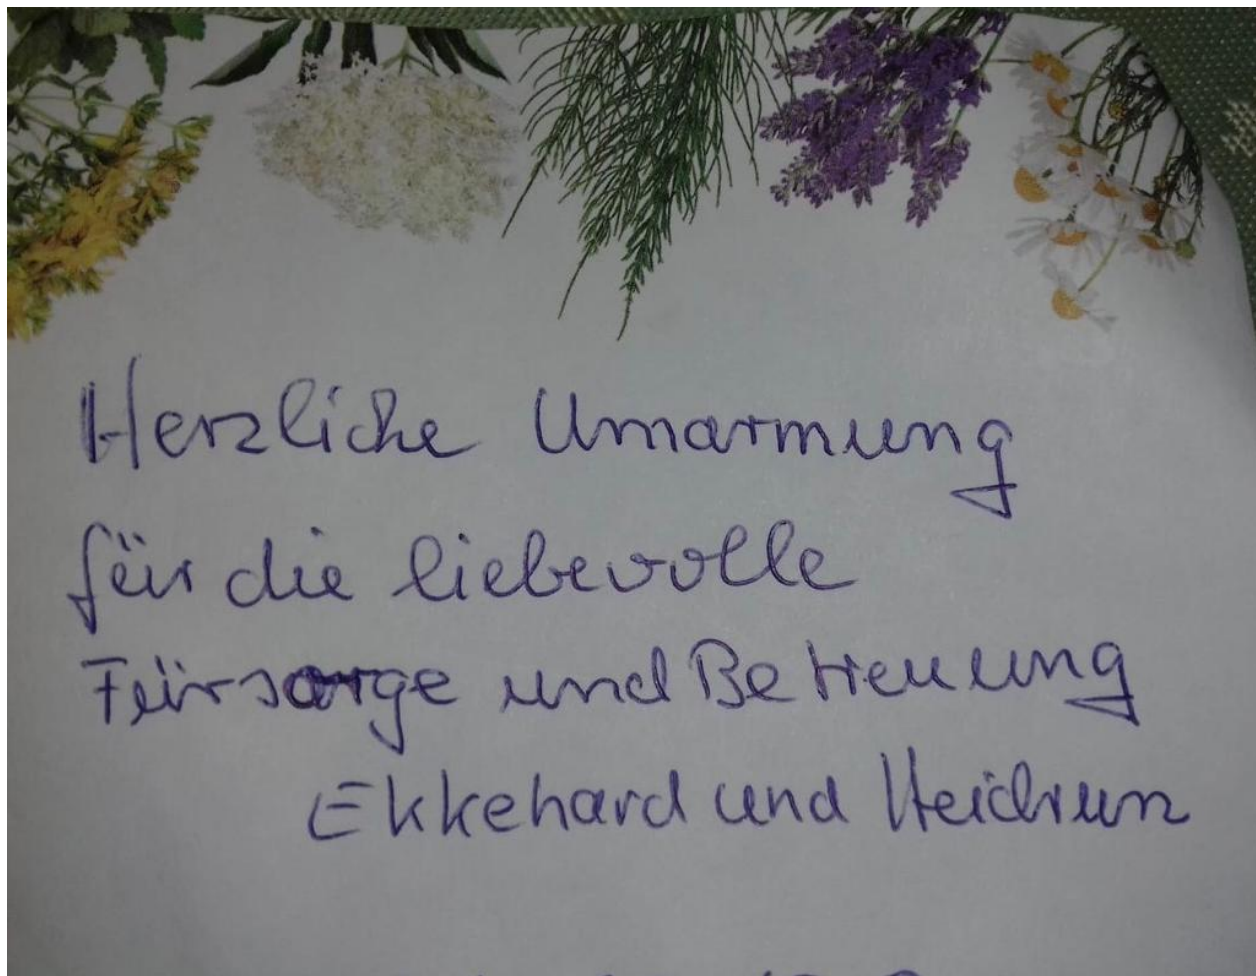 Herzliche Umarmung
für die liebevolle
Fürsorge und Betreuung
Ekkehard und Heidrun